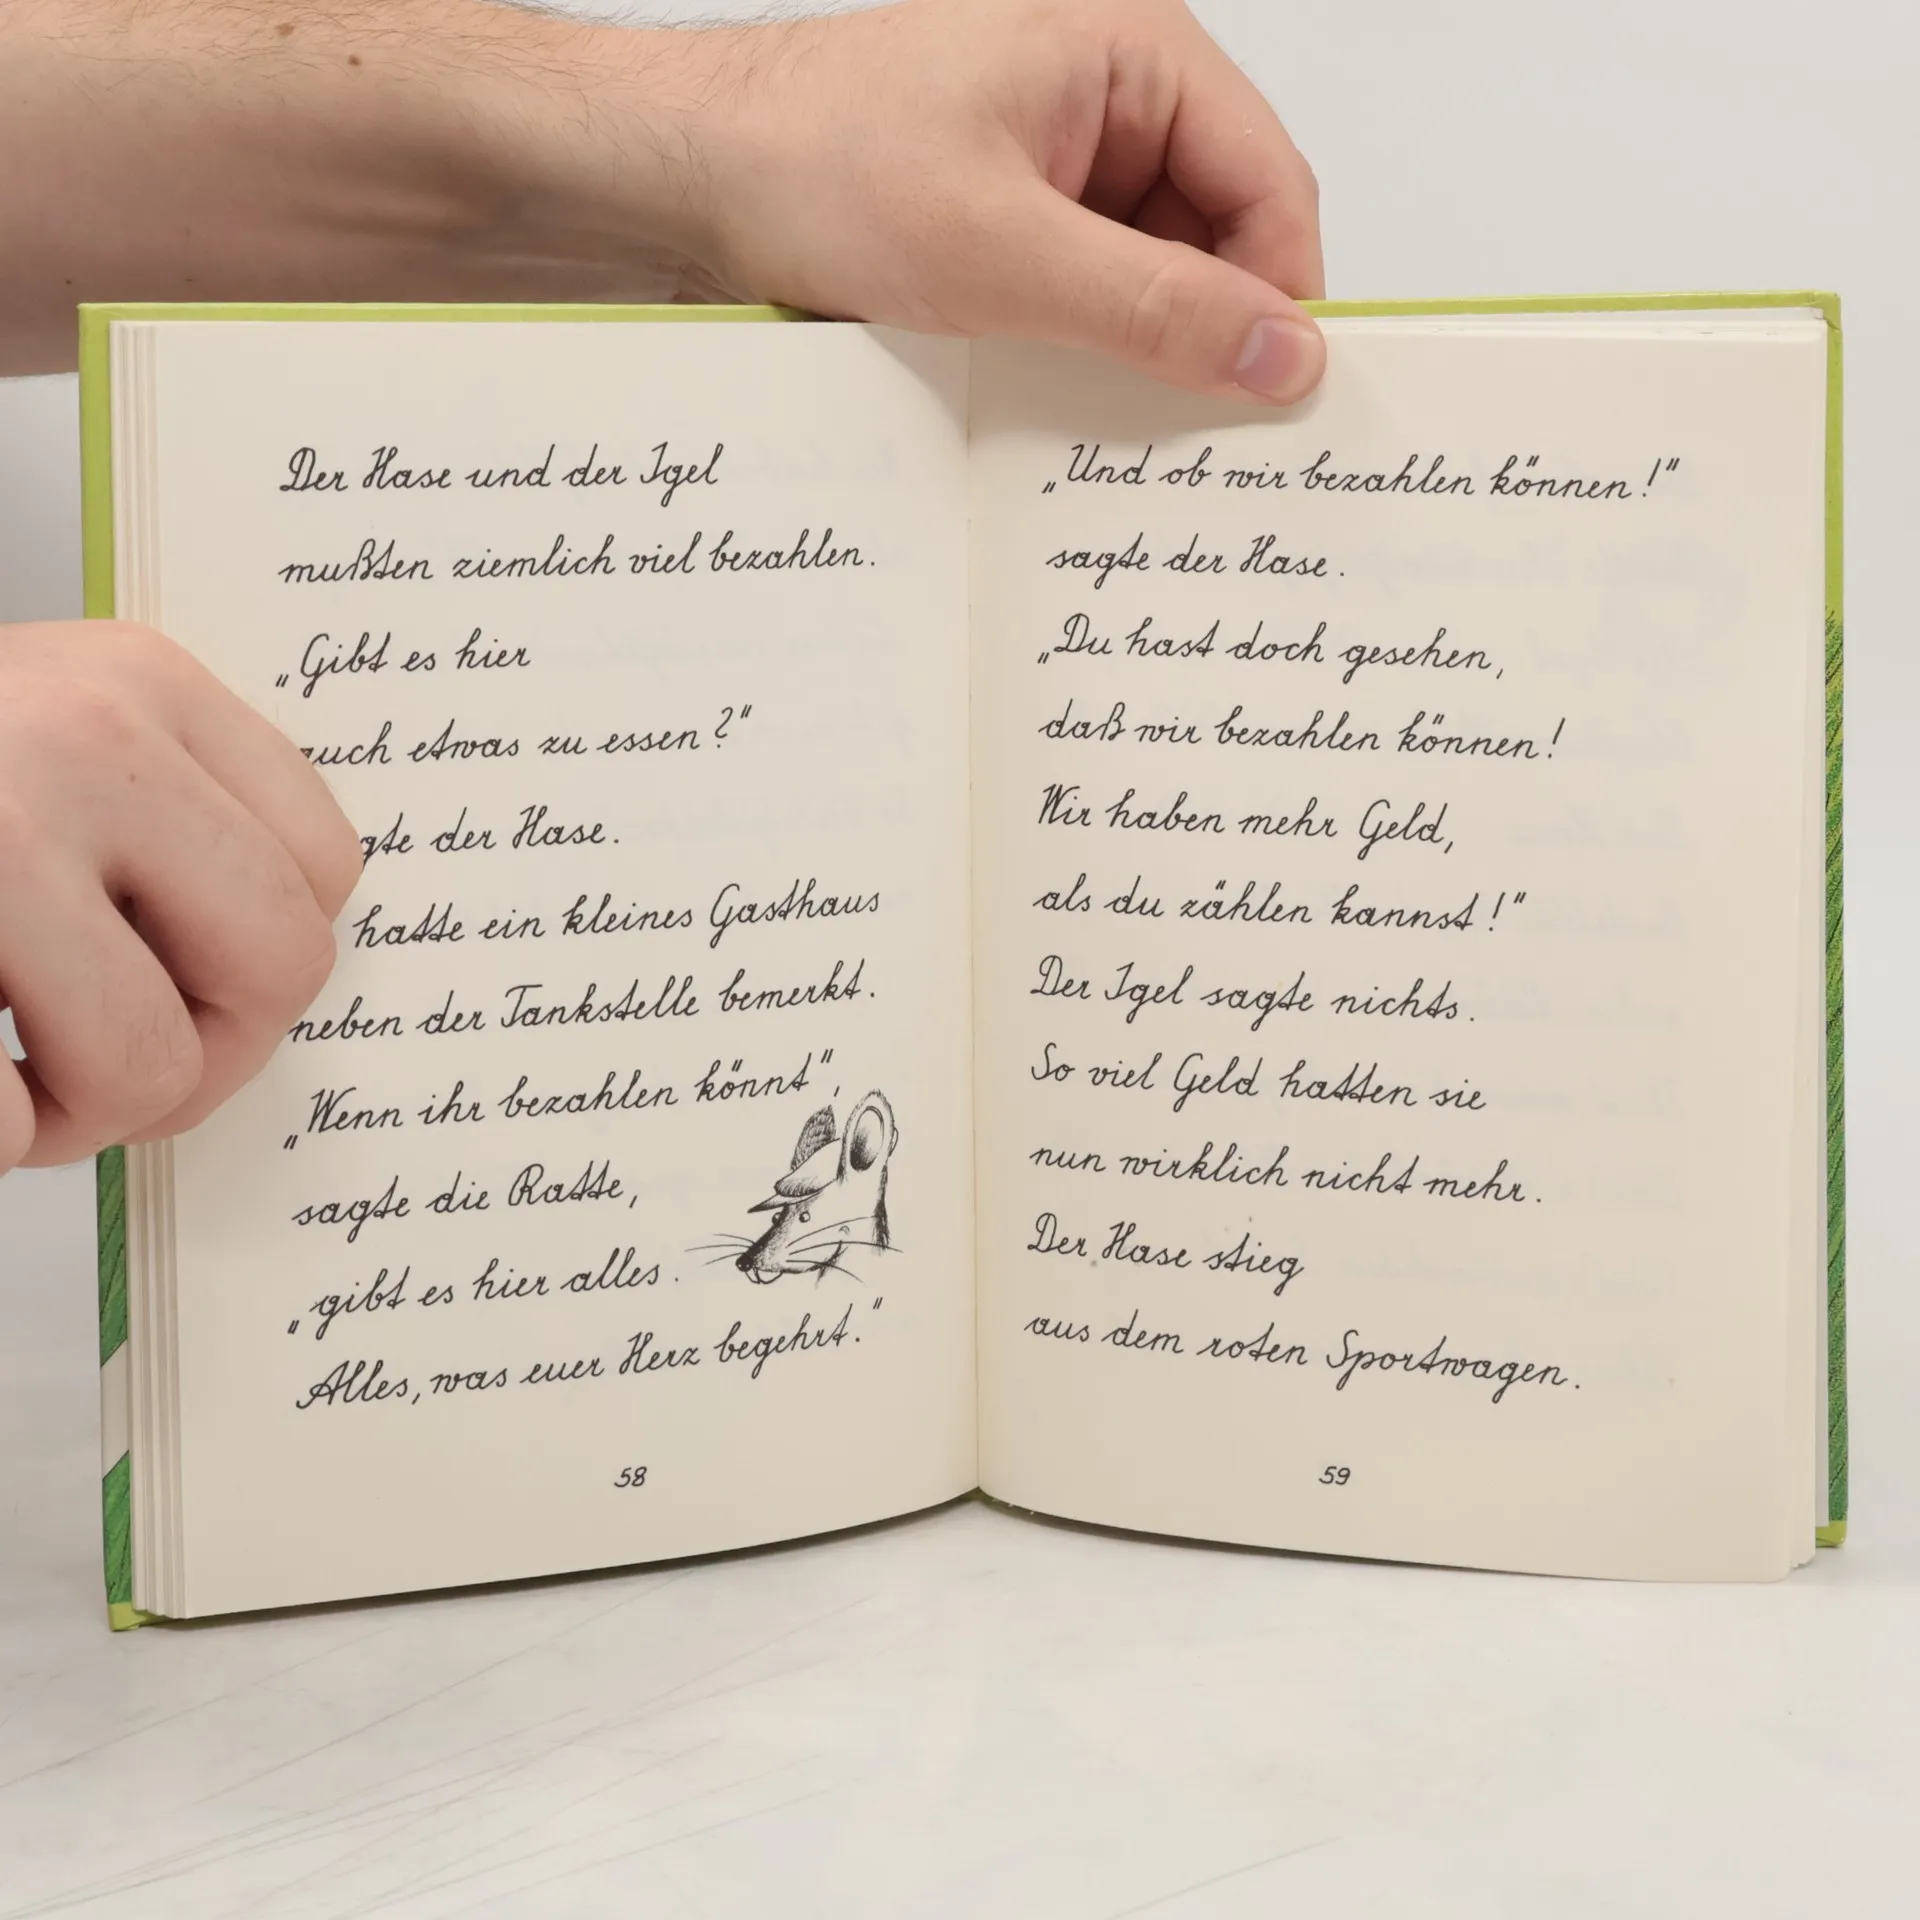 Der Hase und der Igel
mußten ziemlich viel bezahlen.
„Gibt es hier
auch etwas zu essen?"
der Hase.
hatte ein kleines Gasthaus
neben der Tankstelle bemerkt.
„Wenn ihr bezahlen könnt",
sagte die Ratte,
„gibt es hier alles.
Alles, was euer Herz begehrt."
58
„Und ob wir bezahlen können!"
sagte der Hase.
„Du hast doch gesehen,
daß wir bezahlen können!
Wir haben mehr Geld,
als du zählen kannst!"
Der Igel sagte nichts.
So viel Geld hatten sie
nun wirklich nicht mehr.
Der Hase stieg
aus dem roten Sportwagen.
59